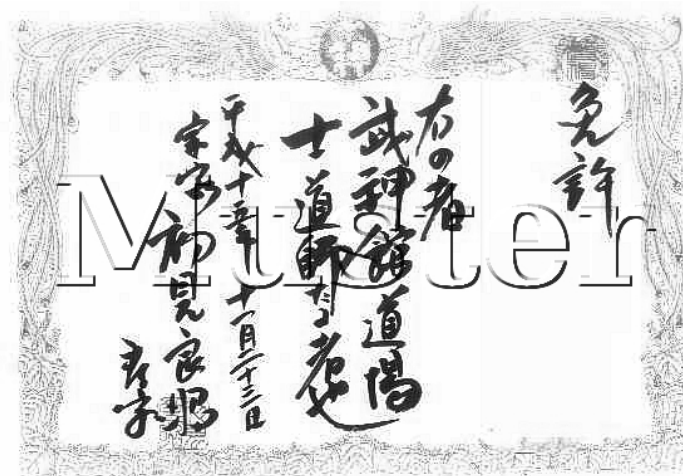 免許
右の者
武神館道場
士道師たる者也
平成十五年 十一月二十三日
宗家 初見良昭
Muster